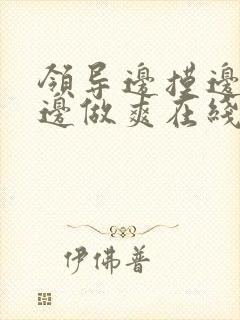 領导邊摸邊
邊做爽在綫
伊佛普